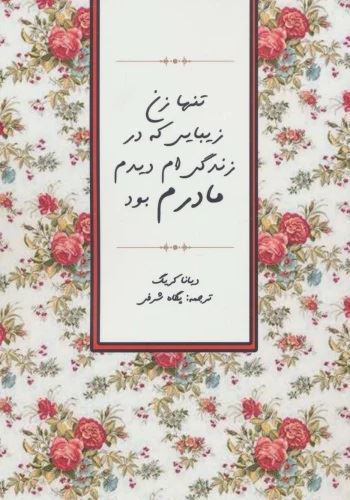 تنها زن
زیبایی که در
زندگی ام دیدم
مادرم بود
دیانا کریگ
ترجمه: پگاه شرفی